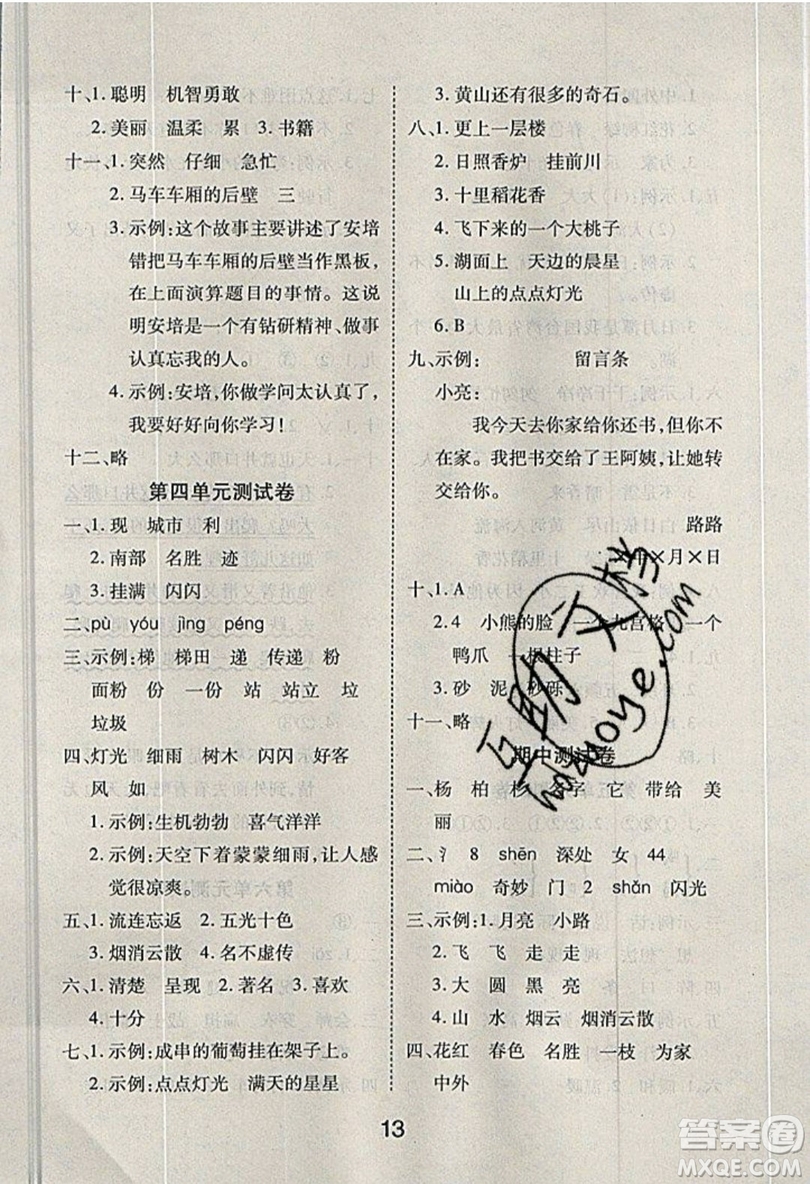 十、1. 聪明　机智勇敢
2. 美丽　温柔　累　3. 书籍
十一、1. 突然　仔细　急忙
2. 马车车厢的后壁　三
3. 示例:这个故事主要讲述了安培
错把马车车厢的后壁当作黑板,
在上面演算题目的事情。这说
明安培是一个有钻研精神、做事
认真节死的人。
4. 示例:安培,你做学问太认真了,
我要好好向你学习!
十二、略
第四单元测试卷
一、1. 现　城市　利
2. 南部　名胜　迹
3. 挂满　闪闪
二、pù　yóu　jìng　péng
三、示例:梯　梯田　递　传递　粉
面粉　份　一份　站　站立　垃
垃圾
四、灯光　细雨　树木　闪闪　好客
风　如
1. 示例:生机勃勃　喜气洋洋
2. 示例:天空下着蒙蒙细雨,让人感
觉很凉爽。
五、1. 流连忘返　2. 五光十色
3. 烟消云散　4. 名不虚传
六、1. 清楚　呈现　2. 著名　3. 喜欢
4. 十分
七、1. 示例:成串的葡萄挂在架子上。
2. 示例:点点灯光　满天的星星
3. 黄山还有很多的奇石。
八、1. 更上一层楼
2. 日照香炉　挂前川
3. 十里稻花香
4. 飞下来的一个大桃子
5. 湖面上　天边的晨星
山上的点点灯光
6. B
九、示例:　留言条
小亮:
我今天去你家给你还书,但你不
在家。我把书交给了王阿姨,让她转
交给你。
路路
×年×月×日
十、1. A
2. 4　小熊的脸　一个九宫格　一个
鸭爪　一根柱子
3. 砂　泥　砂砾
十一、略
期中测试卷
一、杨　柏　杉　名字　它　带给　美
丽
二、氵　8　shēn　深处　女　44
miào　奇妙　门　2　shǎn　闪光
三、示例:1. 月亮　小路
2. 飞　飞　走　走
3. 大　圆　黑　亮
4. 山　水　烟云　烟消云散
四、花红　春色　名胜　一枝　为家
中外
13
互助文档
hezuoye.com
答案圈
MXQE.COM